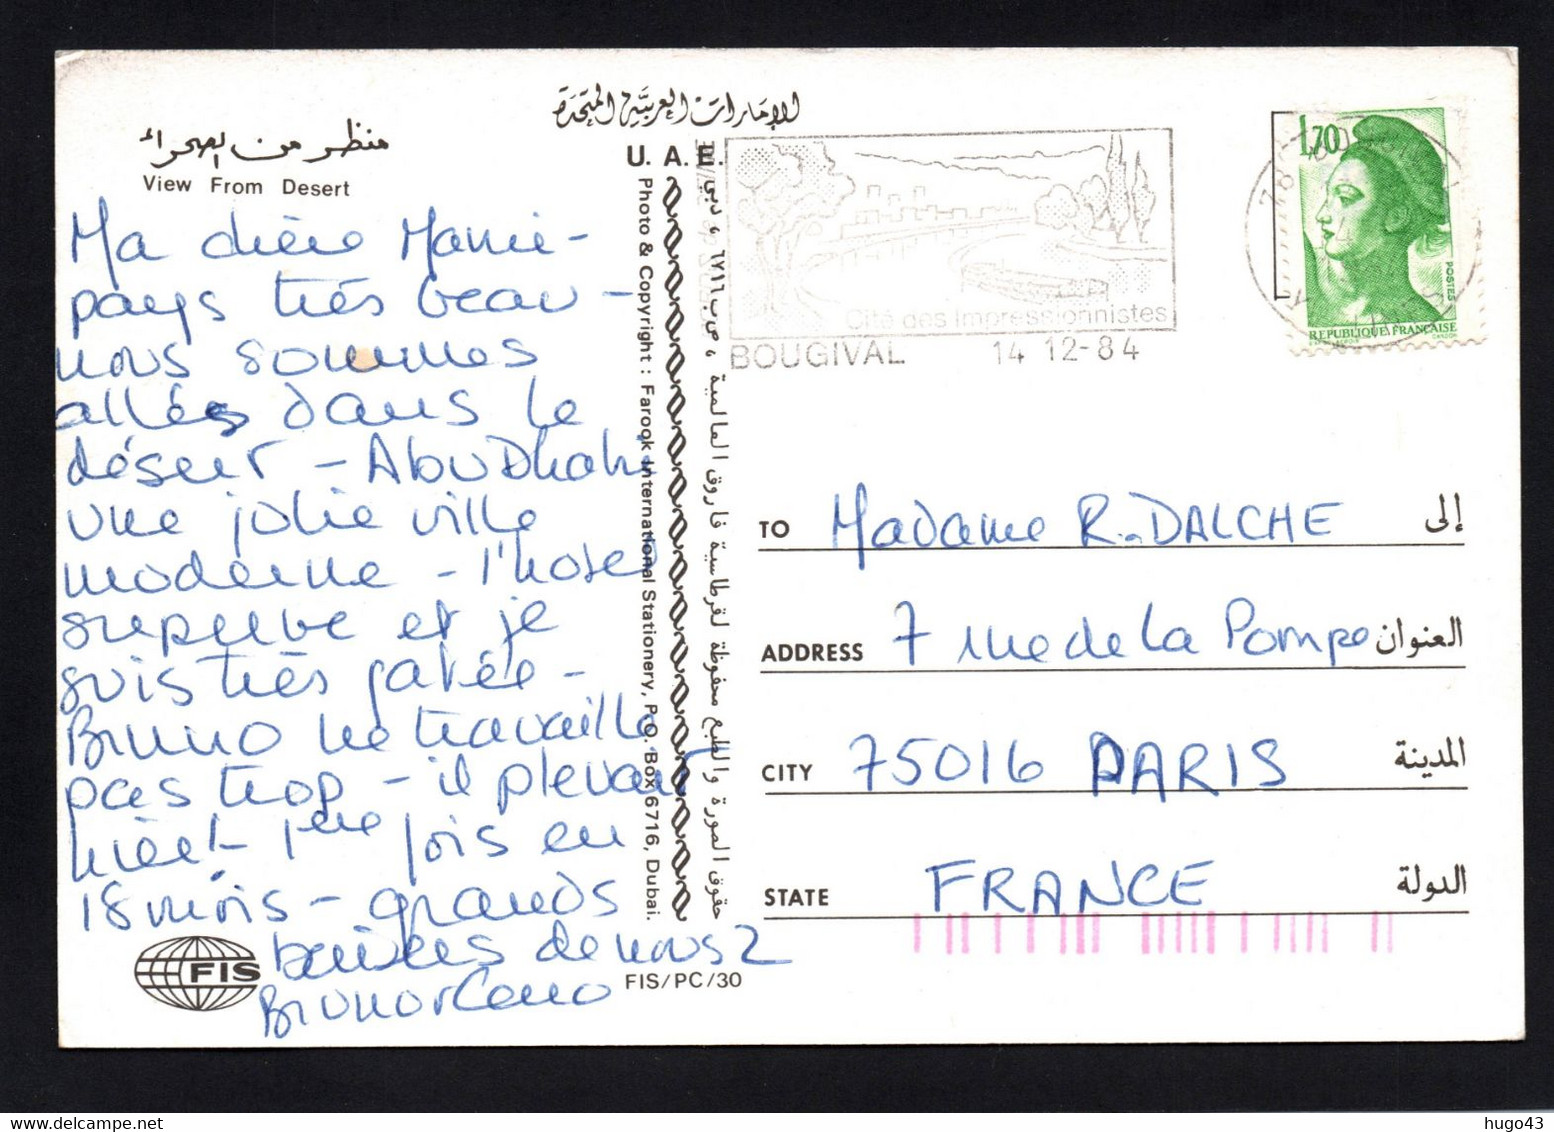 منظر من الصحراء
View From Desert
الإمارات العربية المتحدة
U. A. E.
Ma chère Mamie -
pays très beau -
nous sommes
allés dans le
désert - Abu Dhabi
une jolie ville
moderne - l'hotel
superbe et je
suis très gatée -
Bruno ne travaille
pas trop - il pleuvait
hier! 1ère fois en
18 mois - grands
baisers de nous 2
Bruno et
FIS
FIS/PC/30
Photo & Copyright : Farook International Stationery, P.O. Box 6716, Dubai.
حقوق الصورة والطبع محفوظة لقرطاسية فاروق العالمية ، ص ب ٦٧١٦ ، دبي
Cité des Impressionnistes
BOUGIVAL 14 12-84
78
1,70
POSTES
REPUBLIQUE FRANÇAISE
TO Madame R. DALCHE إلى
ADDRESS 7 rue de la Pompe العنوان
CITY 75016 PARIS المدينة
STATE FRANCE الدولة
hugo43